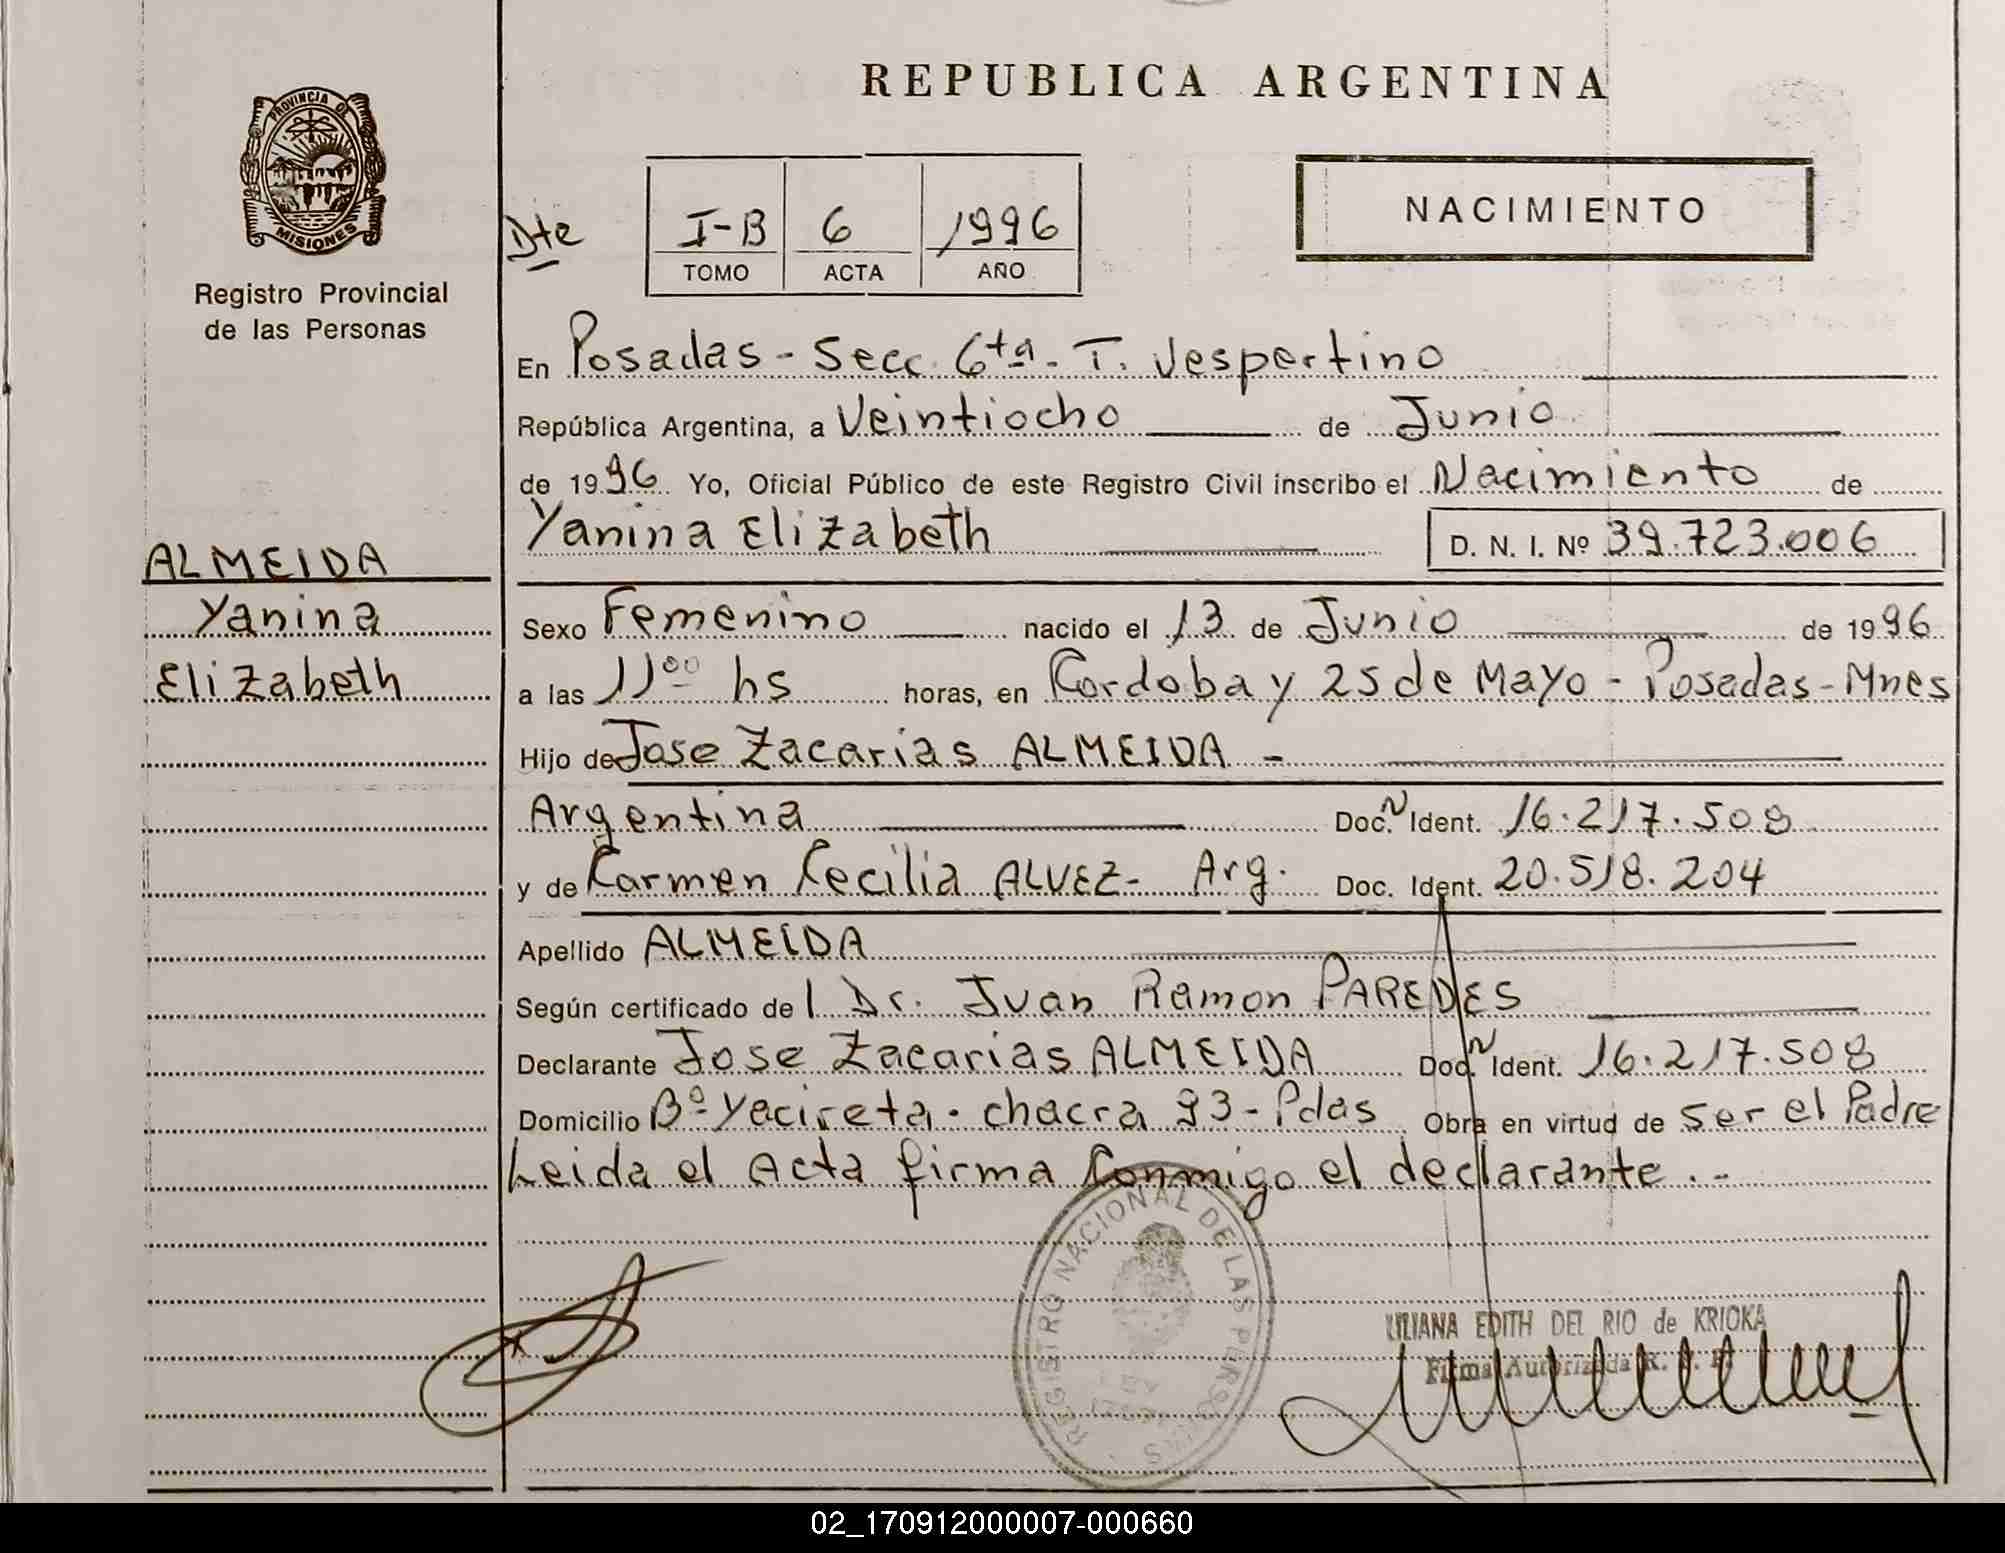 REPUBLICA ARGENTINA
PROVINCIA DE
MISIONES
Registro Provincial
de las Personas
Dte
I-B 6 1996
TOMO ACTA AÑO
NACIMIENTO
En Posadas - Secc. 6ta - T. Vespertino
República Argentina, a Veintiocho de Junio
de 1996 Yo, Oficial Público de este Registro Civil inscribo el Nacimiento de
Yanina Elizabeth D. N. I. Nº 39.723.006
ALMEIDA
Yanina
Elizabeth
Sexo Femenino nacido el 13 de Junio de 1996
a las 11 00 hs horas, en Cordoba y 25 de Mayo - Posadas - Mnes
Hijo de Jose Zacarias ALMEIDA -
Argentina Doc. N Ident. 16.217.508
y de Carmen Cecilia ALVEZ - Arg. Doc. Ident. 20.518.204
Apellido ALMEIDA
Según certificado de l Dr. Juan Ramon PAREDES
Declarante Jose Zacarias ALMEIDA Doc. N Ident. 16.217.508
Domicilio Bº Yacireta - chacra 93 - Pdas Obra en virtud de ser el Padre
Leida el Acta firma Conmigo el declarante . -
REGISTRO NACIONAL DE LAS PERSONAS
LILIANA EDITH DEL RIO de KRIOKA
Firma Autorizada R. P. P.
02_170912000007-000660